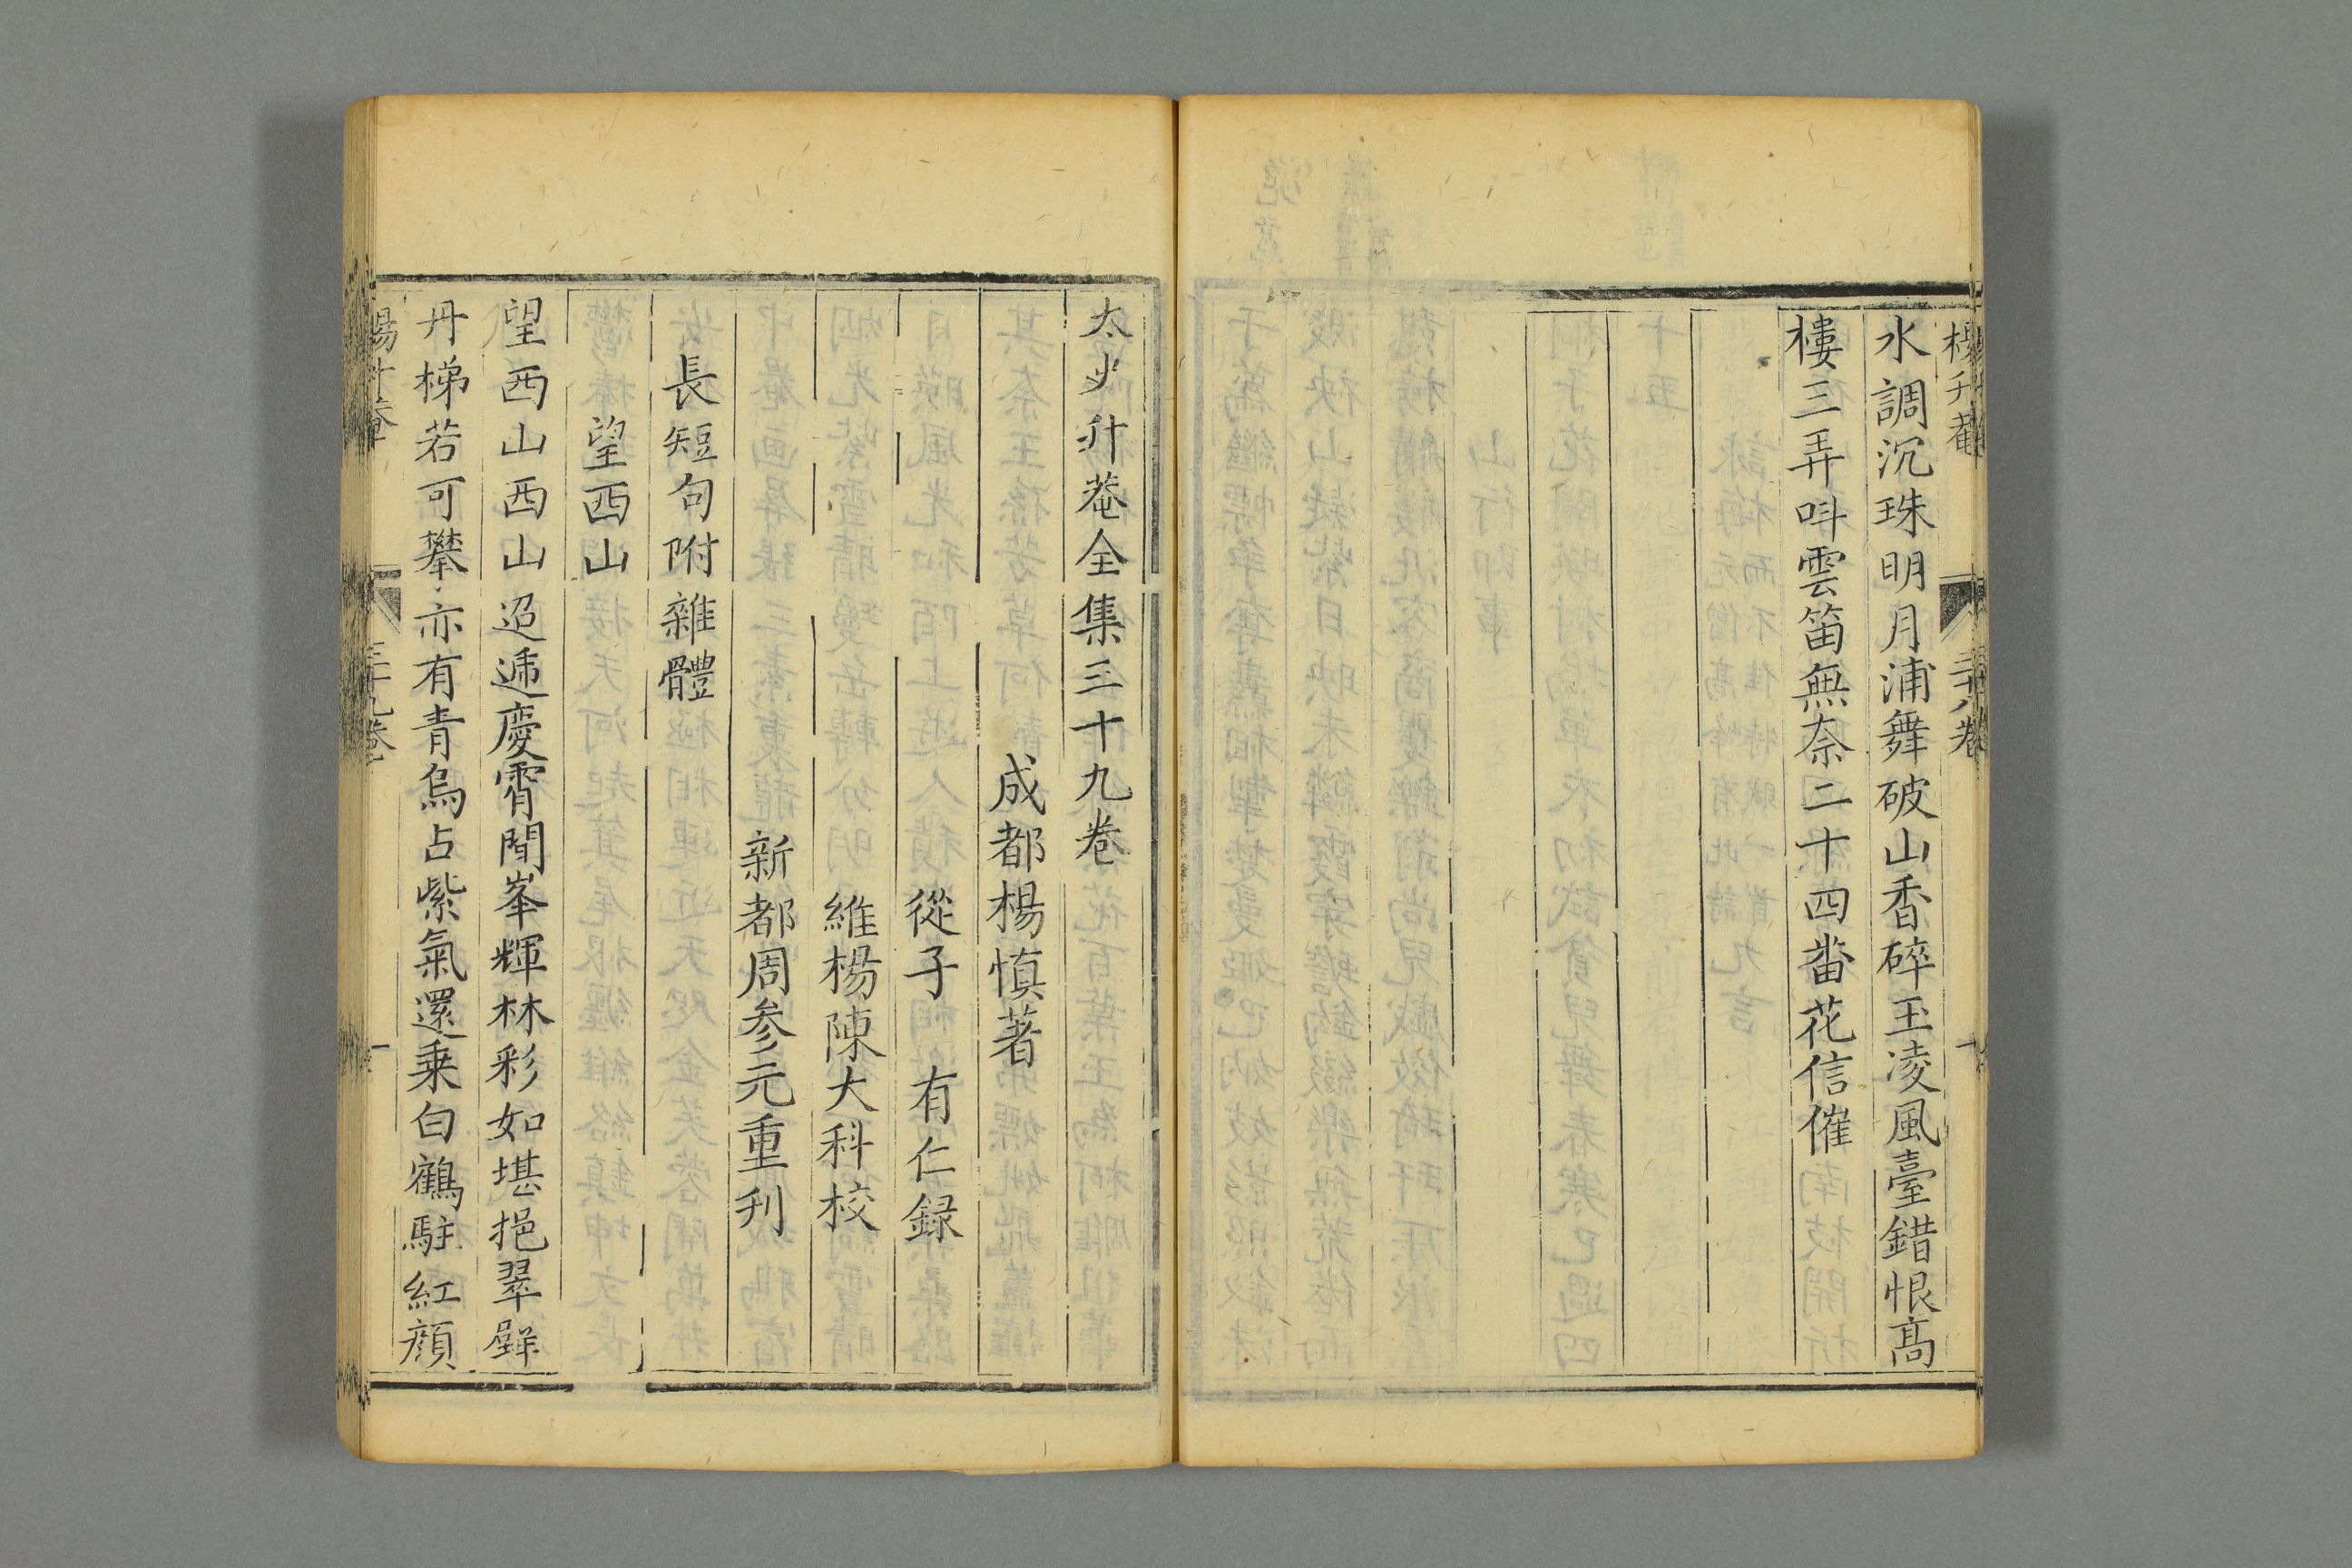 水調沉珠明月浦舞破山香碎玉凌風臺錯恨髙
樓三弄呌雲笛無奈二十四畨花信催
太史升菴全集三十九卷
成都楊慎著
從子 有仁録
維楊陳大科校
新都周参元重刋
長短句附雜體
望西山
望西山西山迢遞慶霄間峯輝林彩如堪挹翠
丹梯若可攀亦有青烏占紫氣還乗白鶴駐紅顔